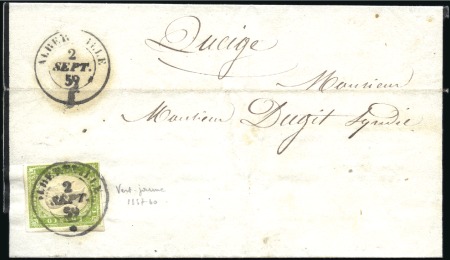 Queige
ALBERTVILLE
2
SEPT.
59
Monsieur
Monsieur Dugit Syndic
ALBERTVILLE
2
SEPT.
59
Vert-jaune
1857-60